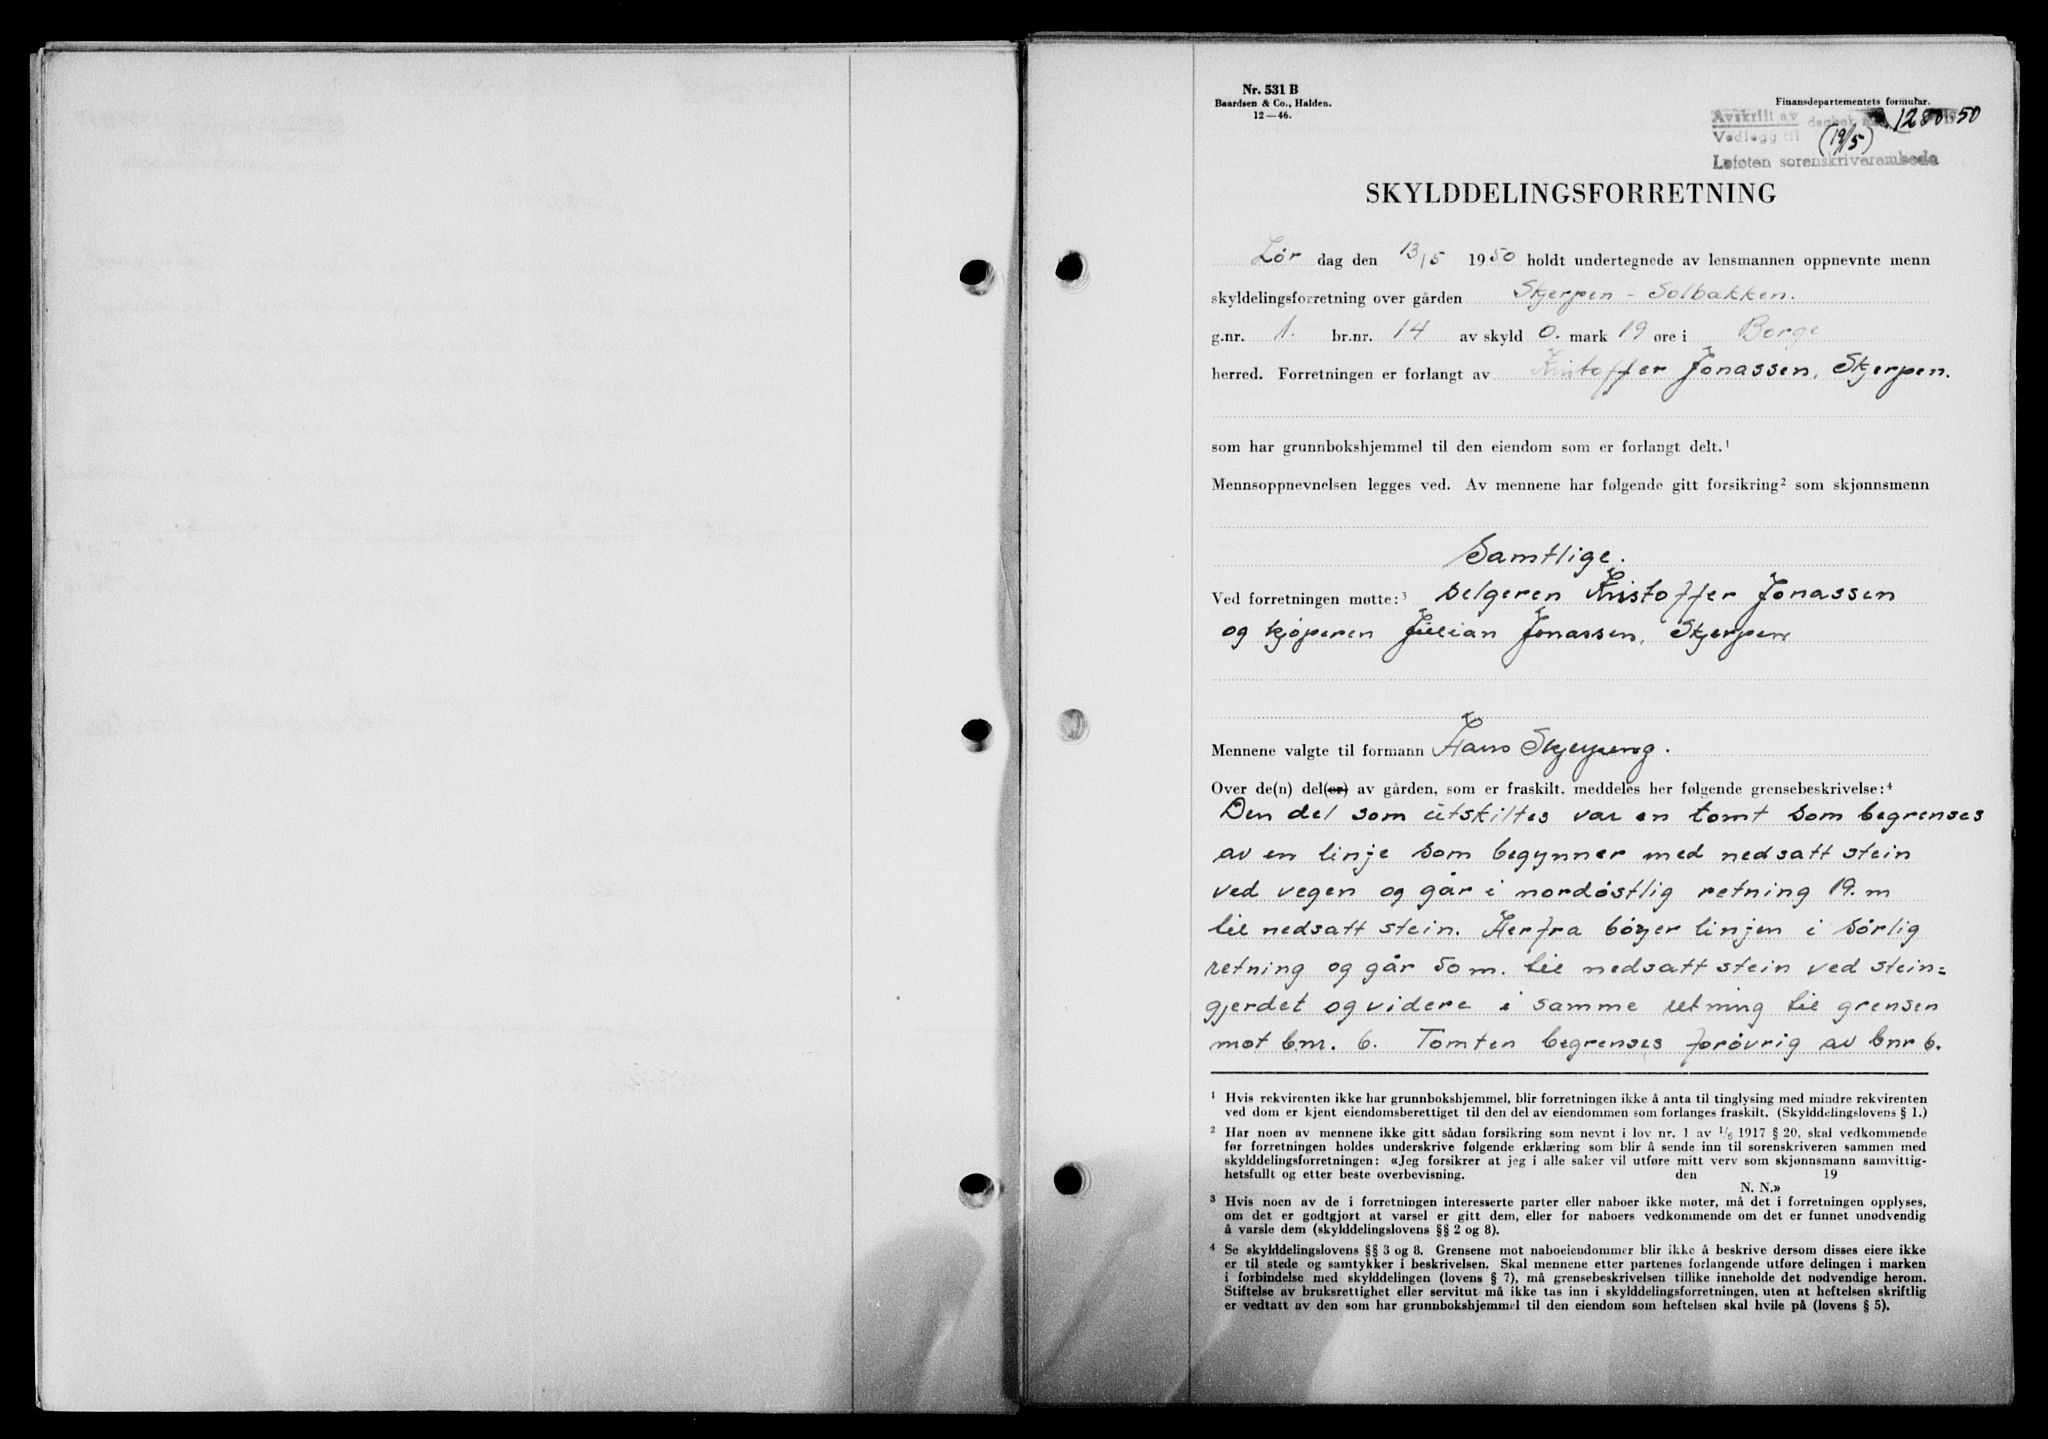 Nr. 531 B
Baardsen & Co., Halden.
12—46.
Finansdepartementets formular.
Avskrift av
Vedlegg til dagbok 1280 50
(19/5)
Lofoten sorenskriverembede
SKYLDDELINGSFORRETNING
Lør dag den 13/5 1950 holdt undertegnede av lensmannen oppnevnte menn
skyldelingsforretning over gården Skjerpen - Solbakken.
g.nr. 1. br.nr. 14 av skyld 0. mark 19 øre i Borge
herred. Forretningen er forlangt av Kristoffer Jonassen, Skjerpen.
som har grunnbokshjemmel til den eiendom som er forlangt delt.¹
Mennsoppnevnelsen legges ved. Av mennene har følgende gitt forsikring² som skjønnsmenn
Samtlige.
Ved forretningen møtte:³ Selgeren Kristoffer Jonassen
og kjøperen Julian Jonassen, Skjerpen
Mennene valgte til formann Hans Skjerpeng.
Over de(n) del(er) av gården, som er fraskilt, meddeles her følgende grensebeskrivelse:⁴
Den del som utskiltes var en tomt som begrenses
av en linje som begynner med nedsatt stein
ved vegen og går i nordøstlig retning 19. m
til nedsatt stein. Herfra bøyer linjen i sørlig
retning og går 50 m. til nedsatt stein ved stein=
gjerdet og videre i samme retning til grensen
mot b.nr. 6. Tomten begrenses forøvrig av bnr 6.
¹ Hvis rekvirenten ikke har grunnbokshjemmel, blir forretningen ikke å anta til tinglysing med mindre rekvirenten
ved dom er kjent eiendomsberettiget til den del av eiendommen som forlanges fraskilt. (Skylddelingslovens § 1.)
² Har noen av mennene ikke gitt sådan forsikring som nevnt i lov nr. 1 av 1/6 1917 § 20, skal vedkommende
før forretningen holdes underskrive følgende erklæring som blir å sende inn til sorenskriveren sammen med
skylddelingsforretningen: «Jeg forsikrer at jeg i alle saker vil utføre mitt verv som skjønnsmann samvittig-
hetsfullt og etter beste overbevisning. den 19
N. N.»
³ Hvis noen av de i forretningen interesserte parter eller naboer ikke møter, må det i forretningen opplyses,
om det er godtgjort at varsel er gitt dem, eller for naboers vedkommende om det er funnet unødvendig
å varsle dem (skylddelingslovens §§ 2 og 8).
⁴ Se skylddelingslovens §§ 3 og 8. Grensene mot naboeiendommer blir ikke å beskrive dersom disses eiere ikke
er til stede og samtykker i beskrivelsen. Skal mennene etter partenes forlangende utføre delingen i marken
i forbindelse med skylddelingen (lovens § 7), må grensebeskrivelsen tillike inneholde det nødvendige herom.
Stiftelse av bruksrettighet eller servitut må ikke tas inn i skylddelingsforretningen, uten at heftelsen skriftlig
er vedtatt av den som har grunnbokshjemmel til den eiendom som heftelsen skal hvile på (lovens § 5).